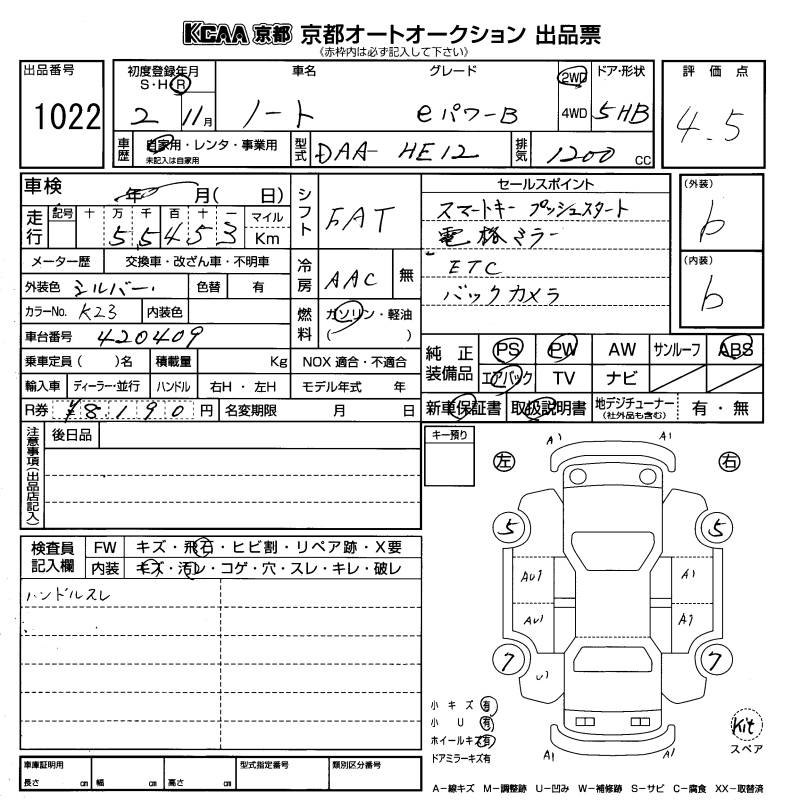 KCAA 京都 京都オートオークション 出品票
《赤枠内は必ず記入して下さい》
出品番号 初度登録年月 車名 グレード 2WD ドア・形状 評価点
S・H・R
1022 2 11月 ノート eパワーB 4WD 5HB 4.5
車歴 自家用・レンタ・事業用 型式 DAA- HE12 排気 1200 CC
未記入は自家用
車検 年 月( 日) シフト FAT セールスポイント (外装)
走行 記号 十 万 千 百 十 一 マイル スマートキー プッシュスタート b
5 5 4 5 3 Km 電格ミラー
メーター歴 交換車・改ざん車・不明車 冷房 AAC 無 ETC (内装)
外装色 シルバー 色替 有 バックカメラ b
カラーNo. K23 内装色 燃料 ガソリン・軽油
車台番号 420409 ( )
乗車定員( )名 積載量 Kg NOX 適合・不適合 純正装備品 PS PW AW サンルーフ ABS
輸入車 ディーラー・並行 ハンドル 右H・左H モデル年式 年 エアバック TV ナビ
R券 ¥8190円 名変期限 月 日 新車保証書 取扱説明書 地デジチューナー 有・無
(社外品も含む)
注意事項(出品店記入) 後日品 キー預り
A1 A1
左 右
5 5
検査員記入欄 FW キズ・飛石・ヒビ割・リペア跡・X要
内装 キズ・汚レ・コゲ・穴・スレ・キレ・破レ
AU1 A1
ハンドルスレ
AU1 A1
7 7
U1
小キズ 有
小U 有
ホイールキズ 有 Kit
ドアミラーキズ 有 スペア
A1 A1
車庫証明用 型式指定番号 類別区分番号
長さ cm 幅 cm 高さ cm
A−線キズ M−調整跡 U−凹み W−補修跡 S−サビ C−腐食 XX−取替済